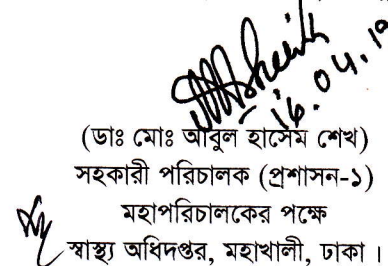 16.04.19
(ডাঃ মোঃ আবুল হাসেম শেখ)
সহকারী পরিচালক (প্রশাসন-১)
মহাপরিচালকের পক্ষে
স্বাস্থ্য অধিদপ্তর, মহাখালী, ঢাকা ।